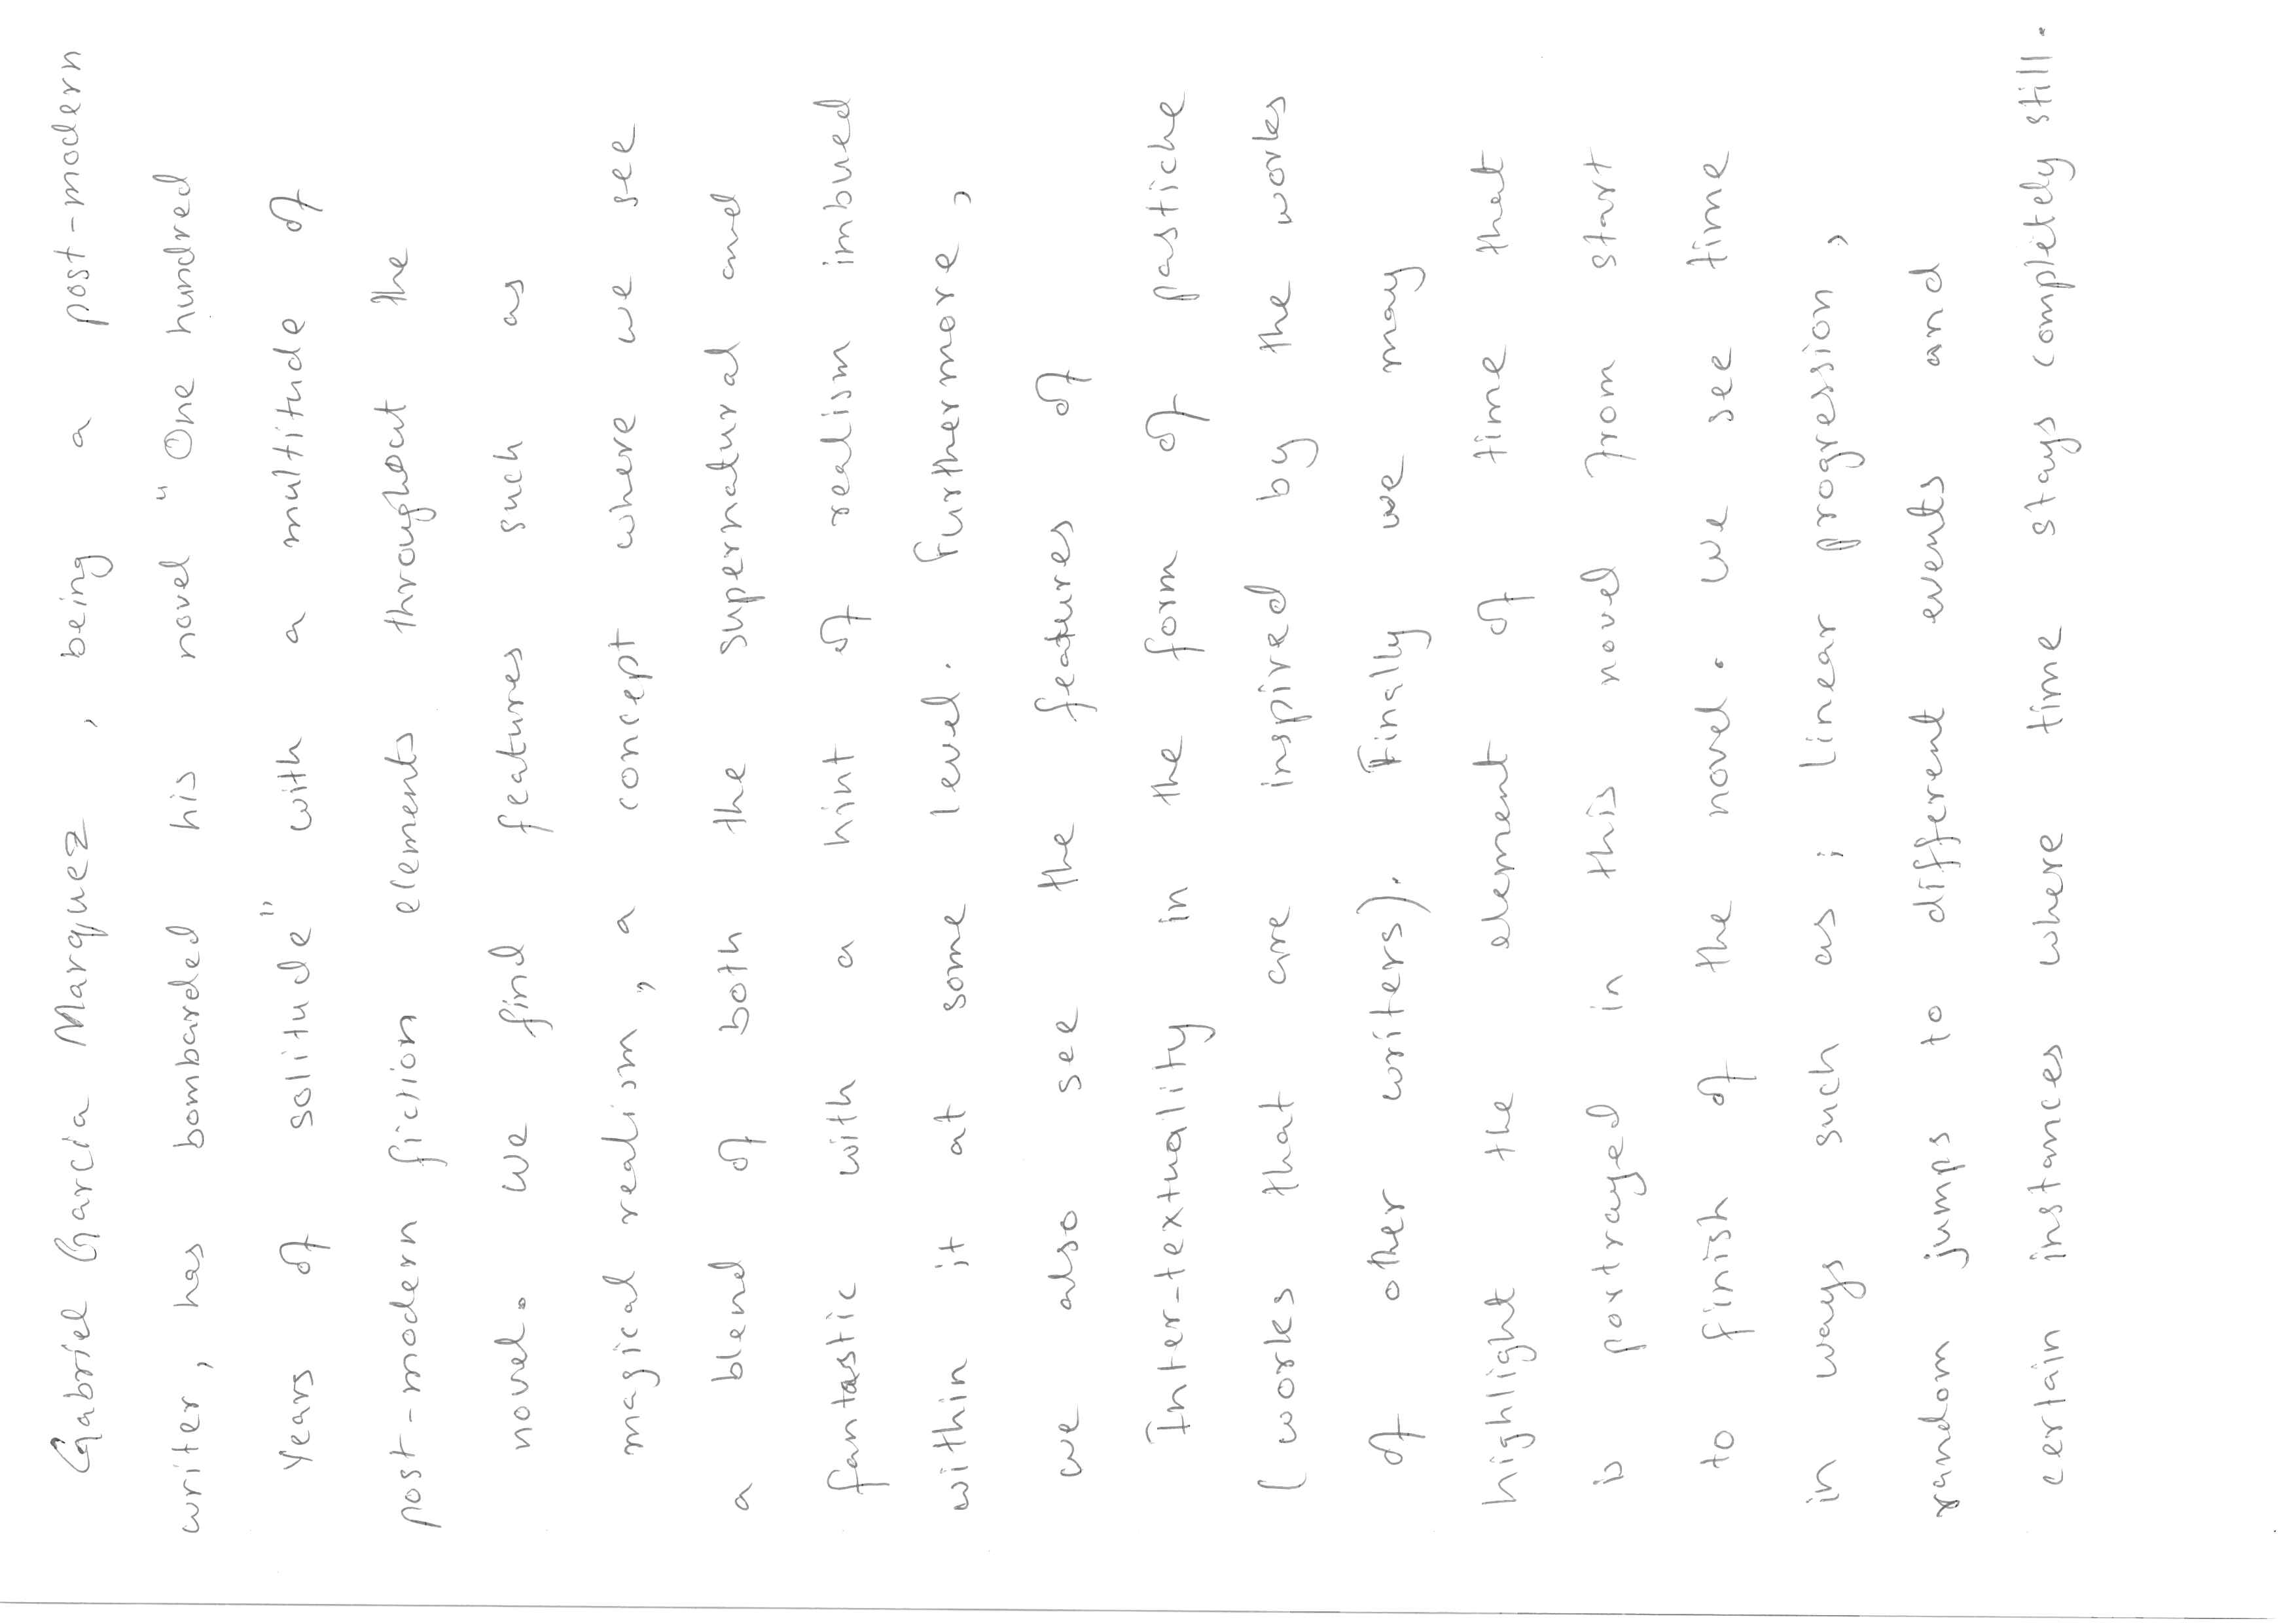 Gabriel Garcia Marquez , being a post-modern
writer, has bombarded his novel "One hundred
Years of solitude" with a multitude of
post-modern fiction elements throughout the
novel. We find features such as
magical realism, a concept where we see
a blend of both the supernatural and
fantastic with a hint of realism imbued
within it at some level. Furthermore,
we also see the features of
Inter-textuality in the form of pastiche
(works that are inspired by the works
of other writers). Finally we may
highlight the element of time that
is portrayed in this novel from start
to finish of the novel. We see time
in ways such as ; linear progression,
random jumps to different events and
certain instances where time stays completely still.